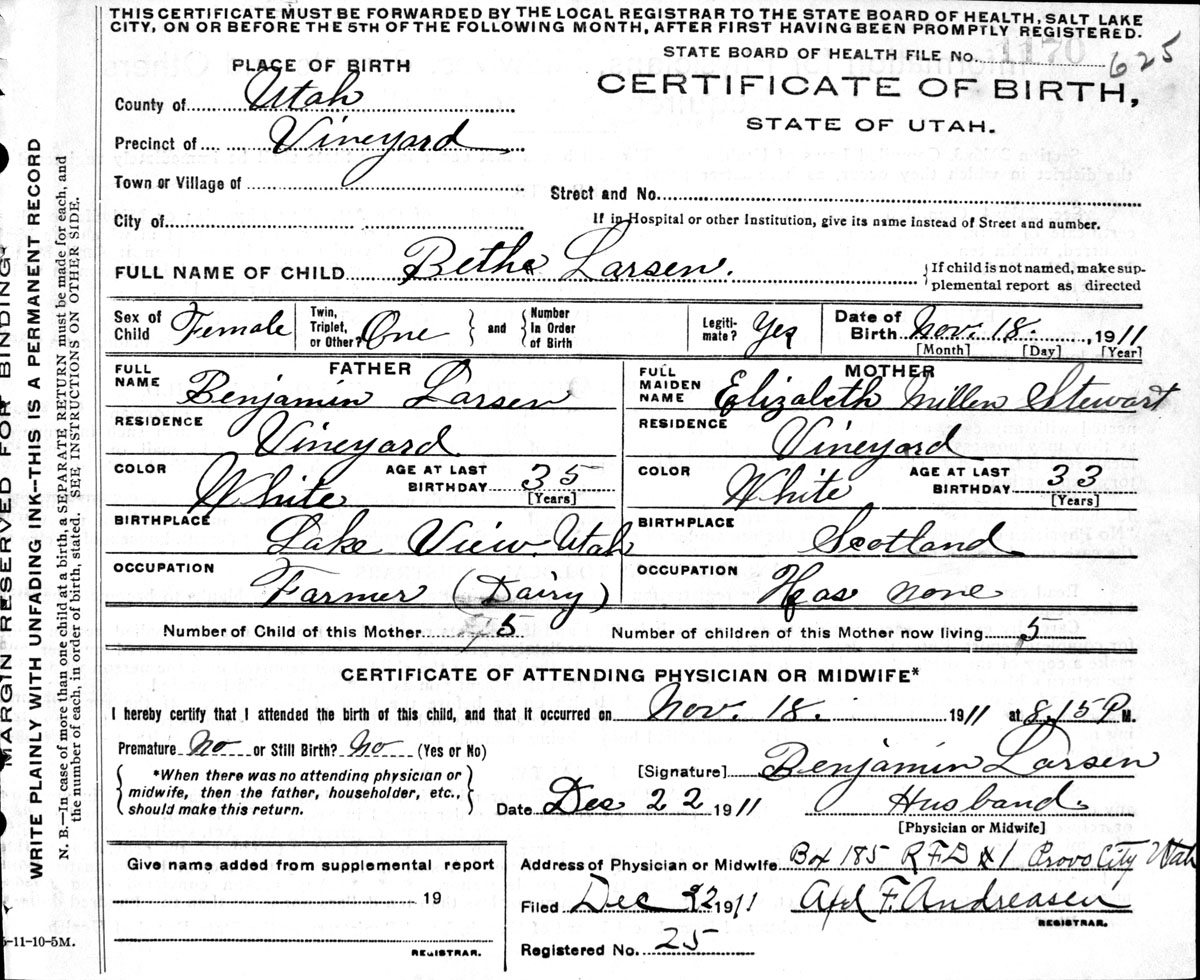 THIS CERTIFICATE MUST BE FORWARDED BY THE LOCAL REGISTRAR TO THE STATE BOARD OF HEALTH, SALT LAKE
CITY, ON OR BEFORE THE 5TH OF THE FOLLOWING MONTH, AFTER FIRST HAVING BEEN PROMPTLY REGISTERED.
STATE BOARD OF HEALTH FILE No. 1170 625
PLACE OF BIRTH
CERTIFICATE OF BIRTH,
STATE OF UTAH.
County of Utah
Precinct of Vineyard
Town or Village of
Street and No.
City of
If in Hospital or other Institution, give its name instead of Street and number.
FULL NAME OF CHILD Betha Larsen.
{If child is not named, make sup-
plemental report as directed
Sex of Child Female
Twin, Triplet, or Other? One } and { Number In Order of Birth
Legiti-mate? Yes
Date of Birth Nov. 18. , 1911
[Month] [Day] [Year]
FATHER
FULL NAME Benjamin Larsen
MOTHER
FULL MAIDEN NAME Elizabeth Millen Stewart
RESIDENCE Vineyard
RESIDENCE Vineyard
COLOR White AGE AT LAST BIRTHDAY 35 [Years]
COLOR White AGE AT LAST BIRTHDAY 33 [Years]
BIRTHPLACE Lake View. Utah
BIRTHPLACE Scotland
OCCUPATION Farmer (Dairy)
OCCUPATION Has none
Number of Child of this Mother 5
Number of children of this Mother now living 5
CERTIFICATE OF ATTENDING PHYSICIAN OR MIDWIFE*
I hereby certify that I attended the birth of this child, and that it occurred on Nov. 18. 1911 at 8.15 P M.
Premature No or Still Birth? No (Yes or No)
{ *When there was no attending physician or
midwife, then the father, householder, etc.,
should make this return. }
[Signature] Benjamin Larsen
Date Dec 22 1911
Husband
[Physician or Midwife]
Give name added from supplemental report
19
REGISTRAR.
Address of Physician or Midwife Box 185 R F D # 1 Provo City Utah
Filed Dec 22 1911 F. Andreasen
REGISTRAR.
Registered No. 25
5-11-10-5M.
MARGIN RESERVED FOR BINDING
WRITE PLAINLY WITH UNFADING INK—THIS IS A PERMANENT RECORD
N. B.—In case of more than one child at a birth, a SEPARATE RETURN must be made for each, and
the number of each, in order of birth, stated. SEE INSTRUCTIONS ON OTHER SIDE.